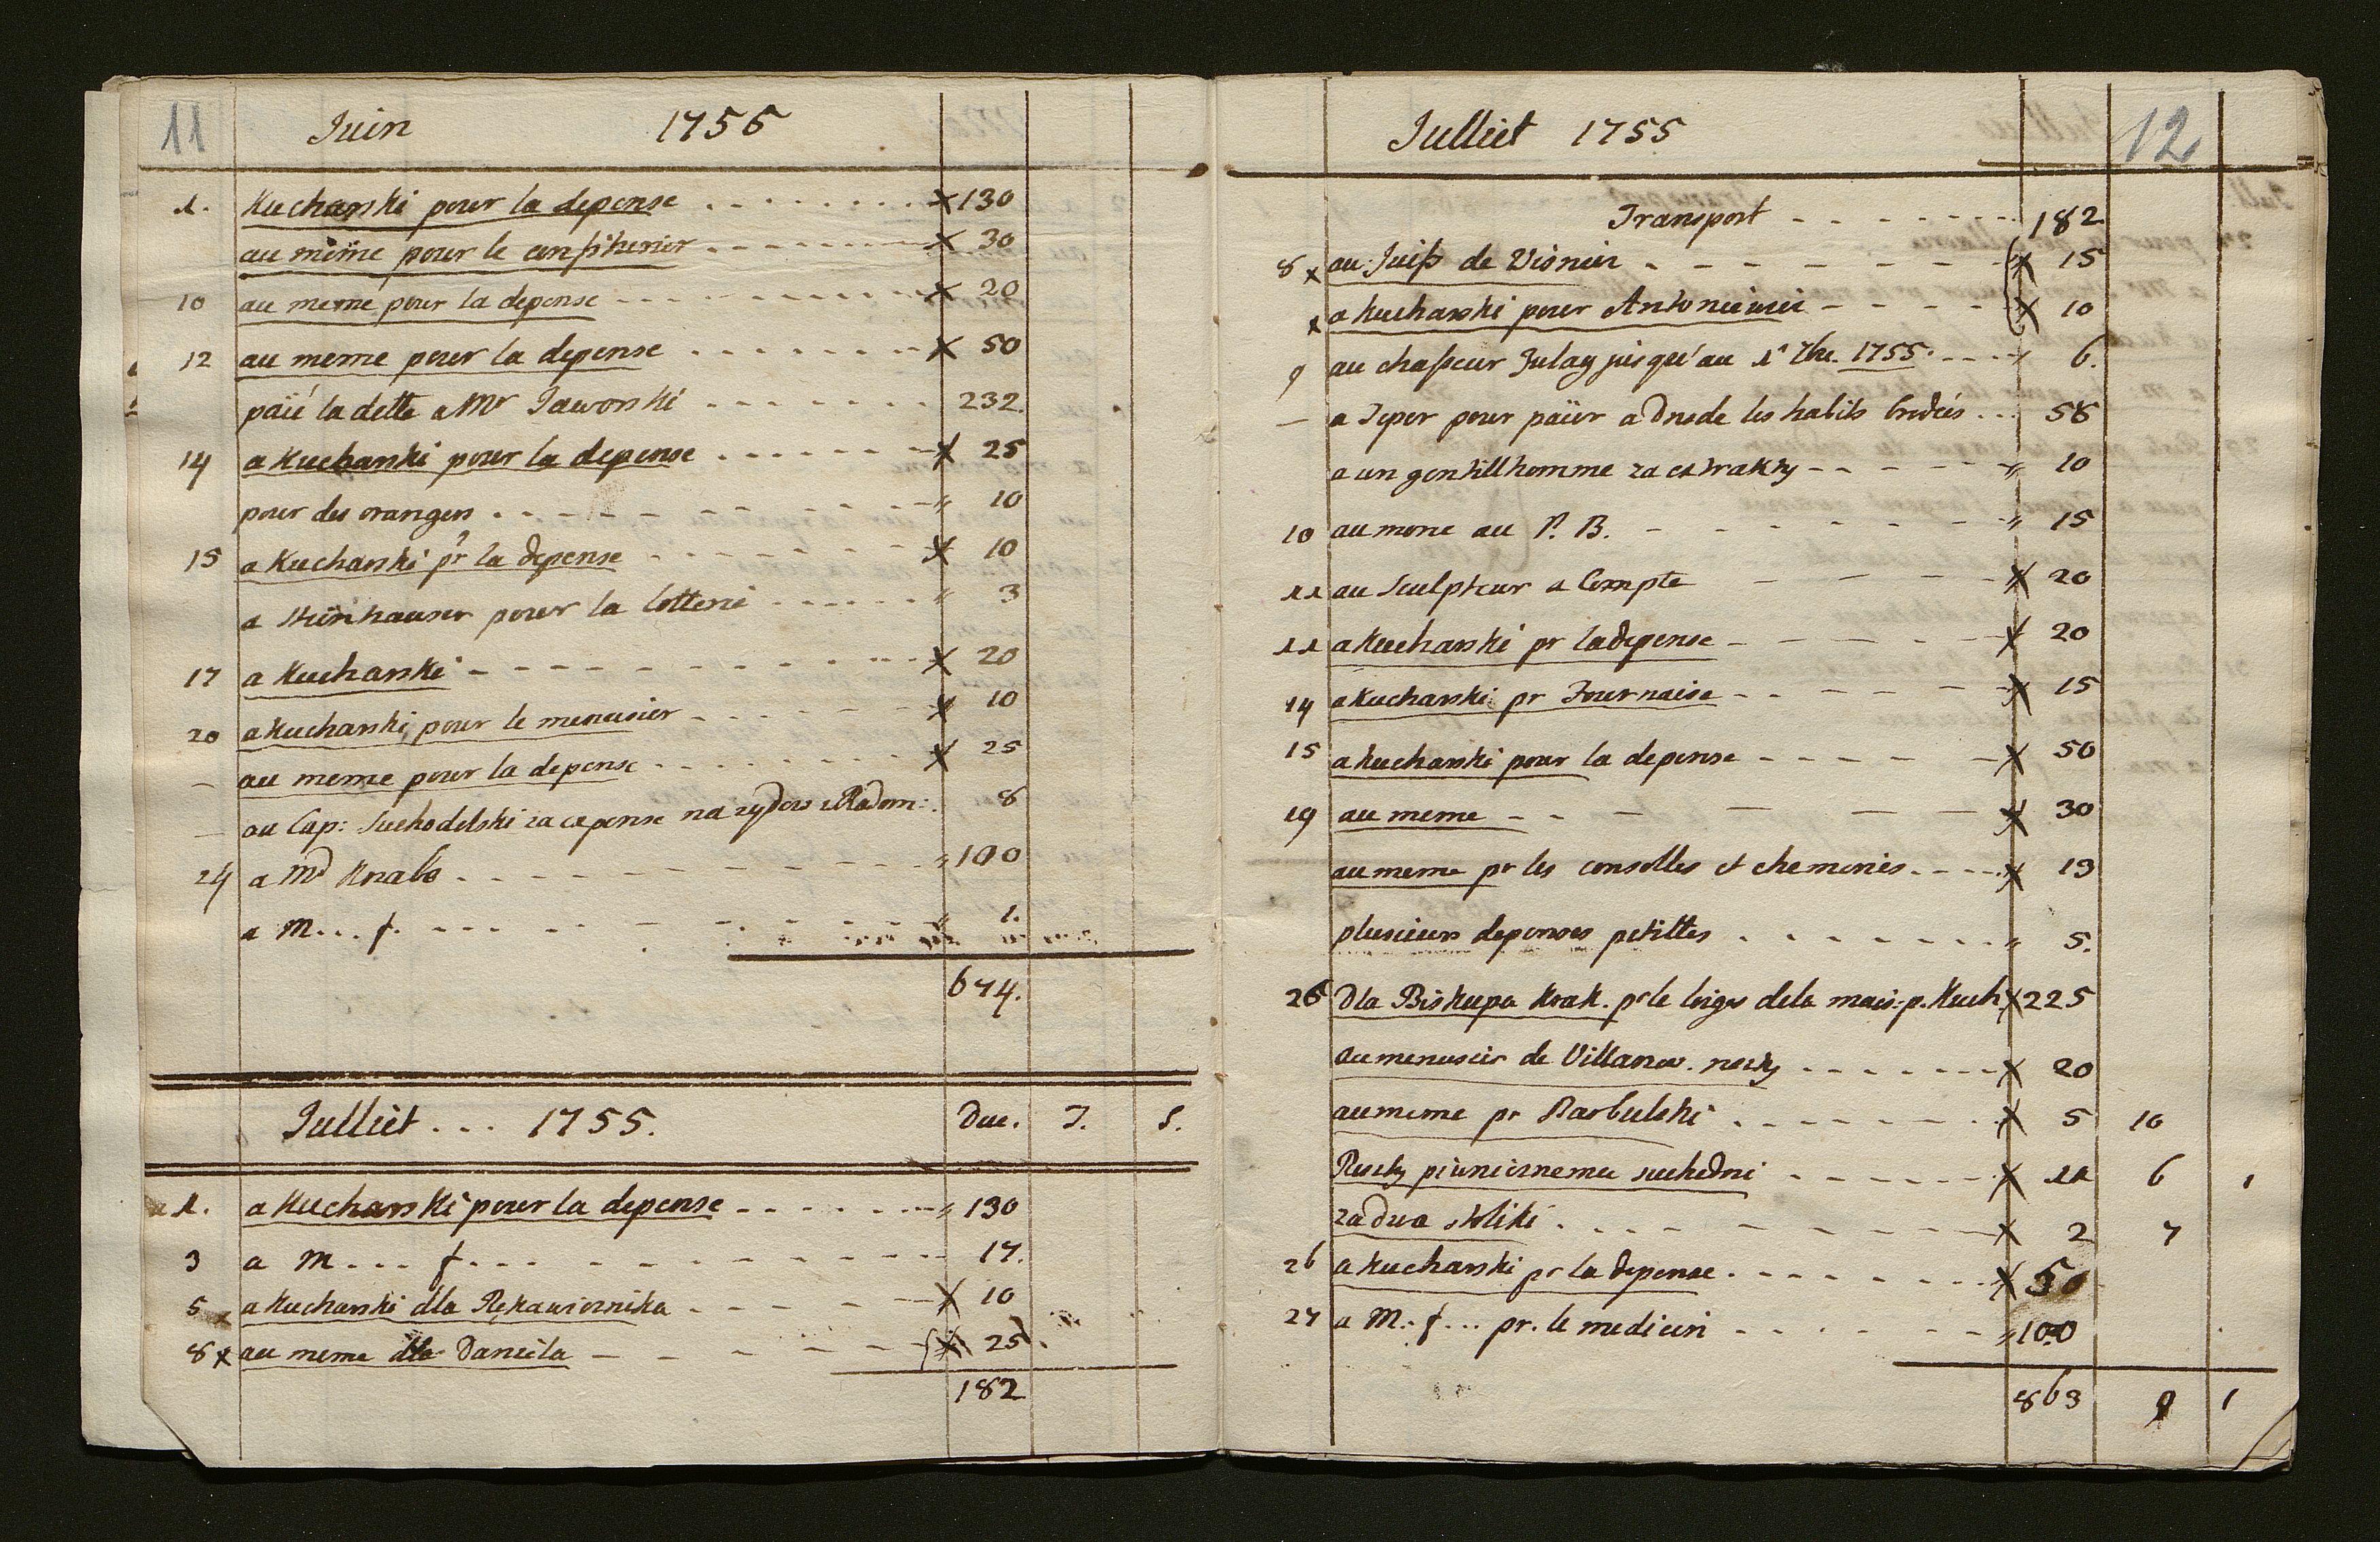 11
Juin 1755
1. Kucharski pour la depense . . . . . . . . x 130
au même pour le confiturier . . . . . . . x 30
10 au meme pour la depense - - - - - - - x 20
12 au meme pour la depense . . . . . . . x 50
païé la dette a Mr Jaworski . . . . . . . 232.
14 a Kucharski pour la depense . . . . . . x 25
pour des oranges . - - - - - - - " 10
15 a Kucharski pr la depense - - - - - - x 10
a Steinhauser pour la lotterie . . . . . . " 3
17 a Kucharski - - - - - - - - x 20
20 a Kucharski pour le menusier - - - - - x 10
— au meme pour la depense . . . . . . . x 25
— au Cap: Suchodolski za expense na zydow z Radom: . 8
24 a Md Krabs . - - - - - - - " 100
a M . . . f . - - - - - - - " 1.
674.
Julliet . . . 1755. Duc. T. S.
1. a Kucharski pour la depense - - - - - " 130
3 a M . . . f . . . - - - - - - 17.
5 x a Kucharski dla Rękawicznika . - - - - x 10
8 x au meme dla Dancila - - - - - - x 25
182
12
Julliet 1755
Transport - - - - - - - 182
8 x au Juif de Visnier - - - - - - - x 15
x a Kucharski pour Antoniewei - - - - x 10
9 au chasseur Gulay jusqu'au 1r 7bre. 1755. - - - " 6.
— a Joper pour païer a Drede les habits brodés . . . 58
a un gentillhomme za extrakty - - - - - " 10
10 aumone au P. B. - - - - - - - " 15
11 au Sculpteur a Compte - - - - x 20
11 a Kucharski pr la depense - - - - - x 20
14 a Kucharski pr Fournaise - - - - - x 15
15 a Kucharski pour la depense - - - - - x 50
19 au meme - - - - - x 30
au meme pr les consolles et cheminés . - - - x 13
plusieurs depenses petittes . . . . . . . " 5.
26 Dla Biskupa Krak. pr le loiges dela mais: p. Kuch. x 225
au menusier de Villanow. reszty . . . . . . x 20
au meme pr Barbulski . - - - - - - x 5 10
Reszty piwnicznemu suchedni - - - - - - x 11 6 1
za dwa stoliki . - - - - - - x 2 7
26 a Kucharski pr la depense . - - - - - x 50
27 a M . . f . . . pr. le medicin - - - - - - " 100
863 9 1